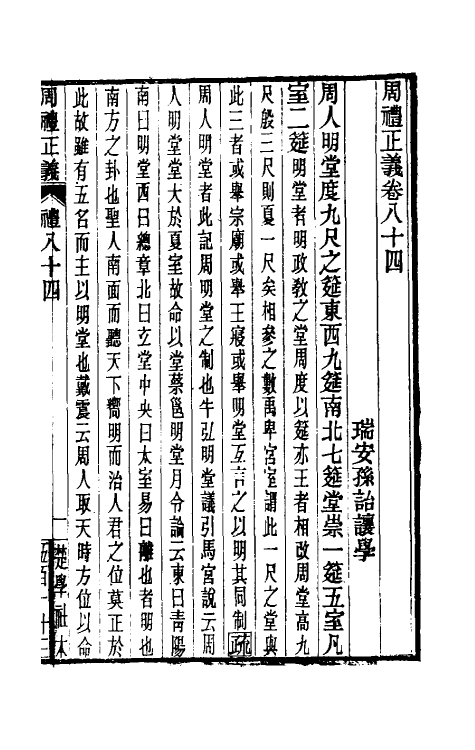 周禮正義卷八十四
瑞安孫詒讓學
周人明堂度九尺之筵東西九筵南北七筵堂崇一筵五室凡
室二筵明堂者明政教之堂周度以筵亦王者相改周堂高九
尺殷三尺則夏一尺矣相參之數禹卑宮室謂此一尺之堂與
此三者或舉宗廟或舉王寢或舉明堂互言之以明其同制疏
周人明堂者此記周明堂之制也牛弘明堂議引馬宮說云周
人明堂堂大於夏室故命以堂蔡邕明堂月令論云東曰青陽
南曰明堂西曰總章北曰玄堂中央曰太室易曰離也者明也
南方之卦也聖人南面而聽天下嚮明而治人君之位莫正於
此故雖有五名而主以明堂也戴震云周人取天時方位以命
周禮正義
禮八十四
一
楚學社本